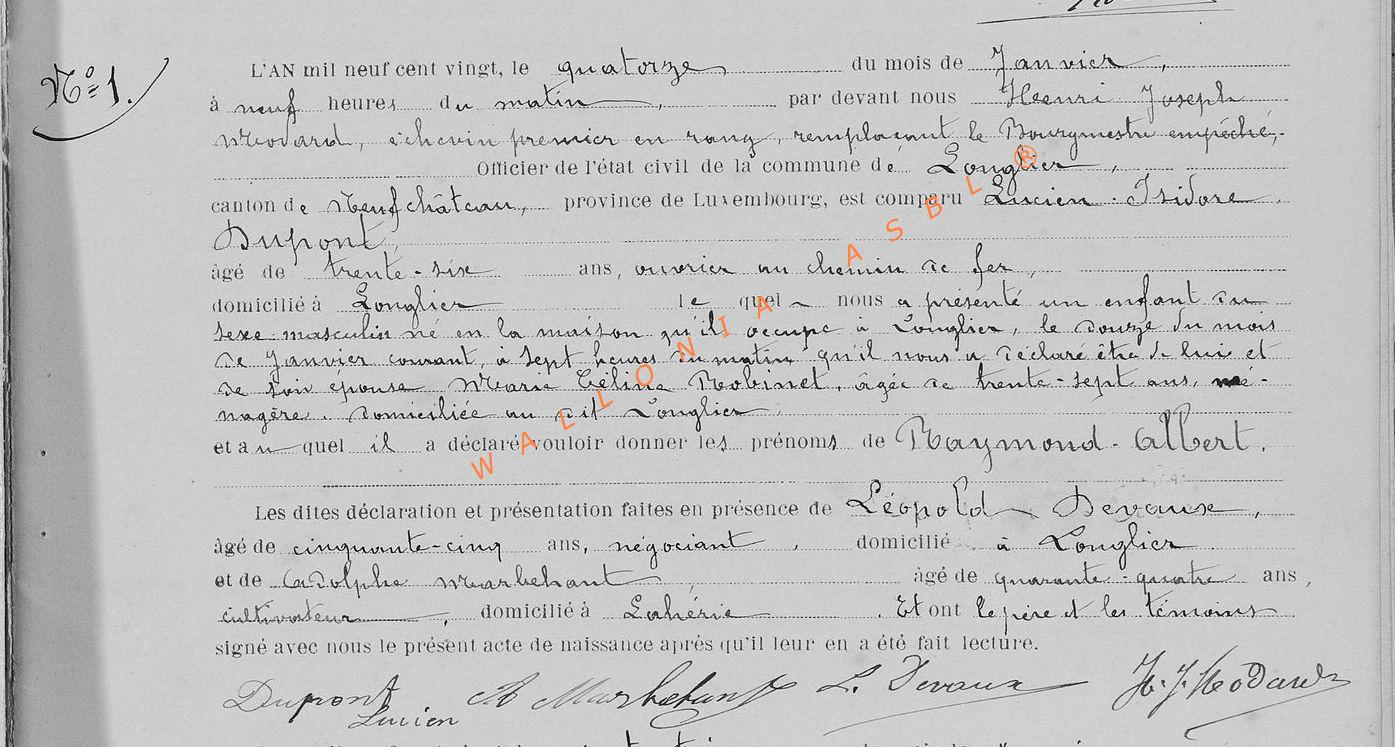 N° 1.
L'AN mil neuf cent vingt, le quatorze du mois de Janvier,
à neuf heures du matin, par devant nous Henri Joseph
Modard, échevin premier en rang, remplaçant le Bourgmestre empêché,
Officier de l'état civil de la commune de Longlier,
canton de Neufchâteau, province de Luxembourg, est comparu Lucien Isidore
Dupont,
âgé de trente-six ans, ouvrier au chemin de fer,
domicilié à Longlier lequel nous a présenté un enfant du
sexe masculin né en la maison qu'il occupe à Longlier, le douze du mois
de Janvier courant, à sept heures du matin, qu'il nous a déclaré être de lui et
de son épouse Marie Céline Robinet, âgée de trente-sept ans, mé-
nagère, domiciliée au dit Longlier,
et auquel il a déclaré vouloir donner les prénoms de Raymond-Albert.
Les dites déclaration et présentation faites en présence de Léopold Devaux,
âgé de cinquante-cinq ans, négociant, domicilié à Longlier
et de Adolphe Marbehant, âgé de quarante-quatre ans,
cultivateur, domicilié à Lahérie. Et ont le père et les témoins
signé avec nous le présent acte de naissance après qu'il leur en a été fait lecture.
Dupont A Marbehant L. Devaux H. J. Modard
Lucien
WALLONIA ASBL ®